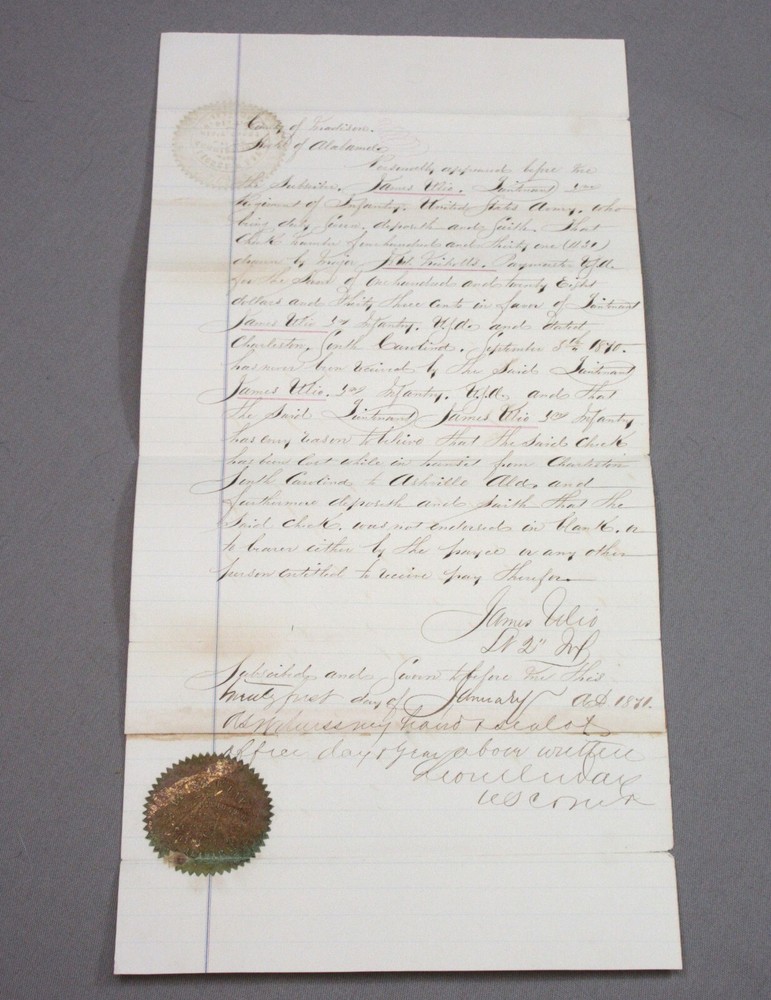 County of Madison.
State of Alabama
Personally appeared before me
the Subscriber. James Ulio. Lieutenant 2nd
Regiment of Infantry. United States Army. who
being duly Sworn. deposeth and Saith. That
Check Number four hundred and thirty one (431)
drawn by Major J. W. Nicholls. Paymaster U.S.A.
for the Sum of One hundred and twenty Eight
dollars and thirty three Cents in favor of Lieutenant
James Ulio 2d Infantry. U.S.A. and dated
Charleston. South Carolina. September 8th 1870.
has never been received by the Said Lieutenant
James Ulio. 2nd Infantry. U.S.A. and that
the Said Lieutenant James Ulio 2nd Infantry
has every reason to believe that the Said Check
has been lost while in transit from Charleston
South Carolina to Ashville Ala. and
furthermore deposeth and Saith that the
Said Check. was not endorsed in blank. or
to bearer either by the payee or any other
person entitled to receive pay therefor
James Ulio
Lt 2" Inf
Subscribed and Sworn to before me this
first day of January AD 1871.
As witness my hand & seal of
office day & year above written
Lionel W Day
US Comr